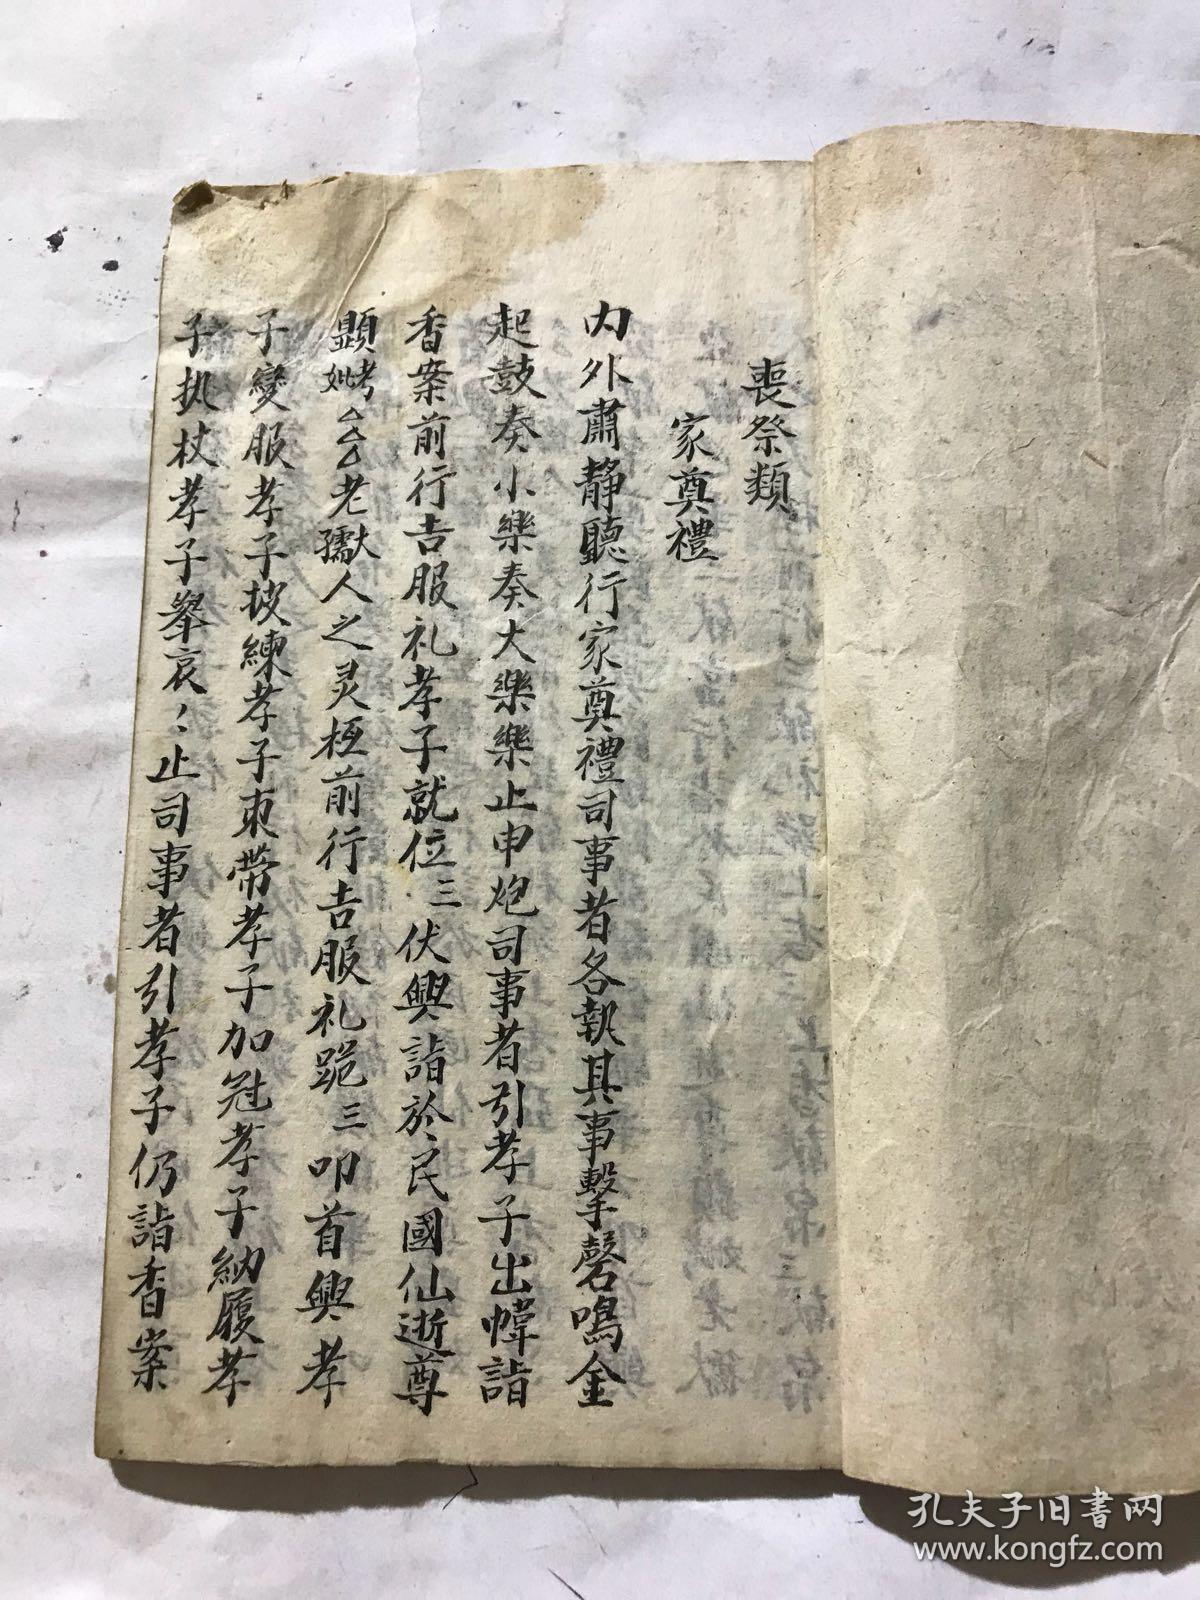 喪祭類
家奠禮
内外肅静聽行家奠禮司事者各執其事擊磬鳴金
起鼓奏小樂奏大樂樂止申炮司事者引孝子出幃詣
香案前行吉服礼孝子就位三伏興詣於民國仙逝尊
顯考妣厶厶厶老献孺人之灵柩前行吉服礼跪三叩首興孝
子變服孝子披練孝子束帶孝子加冠孝子納履孝
子执杖孝子舉哀〻止司事者引孝子仍詣香案
孔夫子旧书网
www.kongfz.com